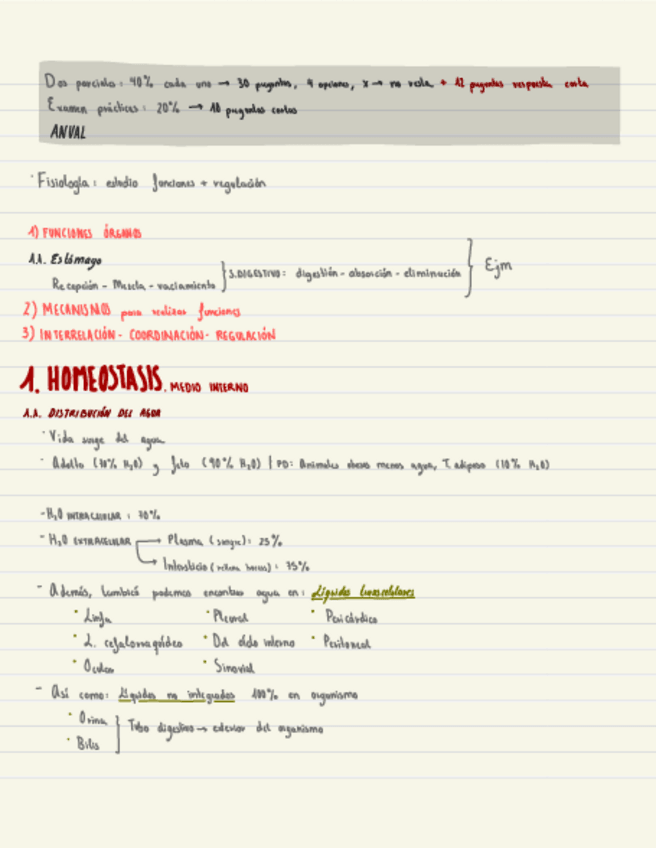 Dos parciales: 40% cada uno → 30 preguntas, 4 opciones, x → no resta + 12 preguntas respuesta corta
Examen prácticas: 20% → 10 preguntas cortas
ANVAL
· Fisiología: estudio funciones + regulación
1) FUNCIONES ÓRGANOS
1.1. Estómago
Recepción - Mezcla - vaciamiento } S.DIGESTIVO: digestión - absorción - eliminación } Ejm
2) MECANISMOS para realizar funciones
3) INTERRELACIÓN - COORDINACIÓN - REGULACIÓN
1. HOMEOSTASIS. MEDIO INTERNO
1.1. DISTRIBUCIÓN DEL AGUA
· Vida surge del agua
· Adulto (70% H2O) y feto (90% H2O) / PD: Animales obesos menos agua, T. adiposo (10% H2O)
- H2O INTRACELULAR: 70%
- H2O EXTRACELULAR → Plasma (sangre): 25%
→ Intersticio (rellena huecos): 75%
- Además, también podemos encontrar agua en: Líquidos transcelulares
· Linfa · Pleural · Pericárdico
· L. cefalorraquídeo · Del oído interno · Peritoneal
· Ocular · Sinovial
- Así como: Líquidos no integrados 100% en organismo
· Orina
· Bilis } Tubo digestivo → exterior del organismo